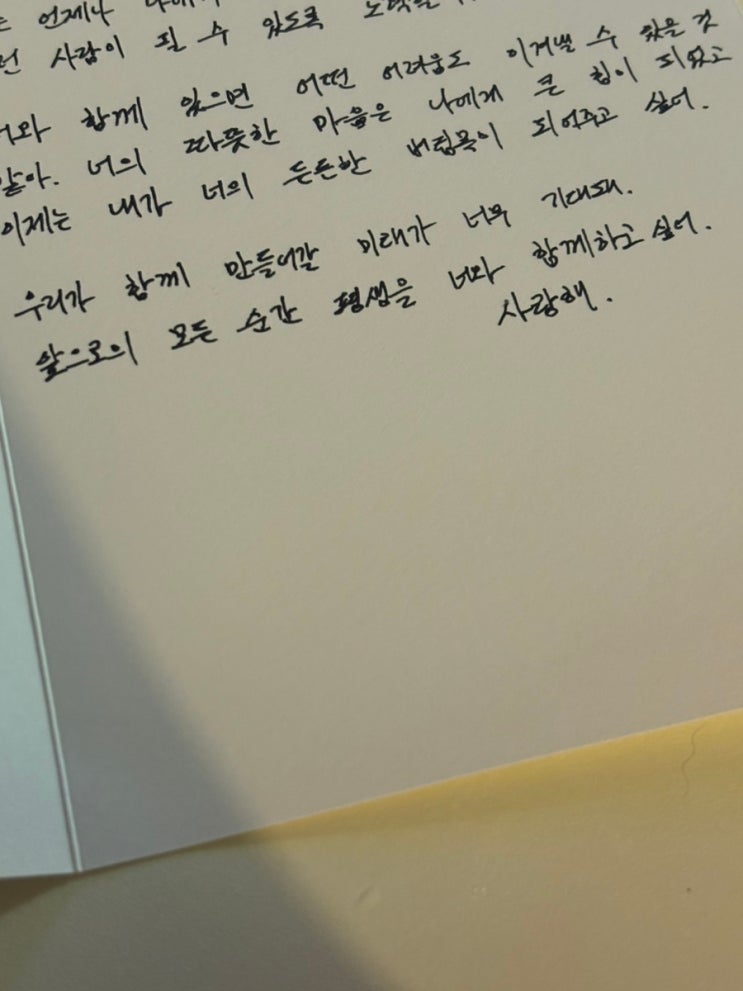 언제나
사람이 될 수 있도록
함께 있으면 어떤 어려움도 이겨낼 수 있을 것
같아. 너의 따뜻한 마음은 나에게 큰 힘이 되었고
이제는 내가 너의 든든한 버팀목이 되어주고 싶어.
우리가 함께 만들어갈 미래가 너무 기대돼.
앞으로의 모든 순간 평생을 너와 함께하고 싶어.
사랑해.